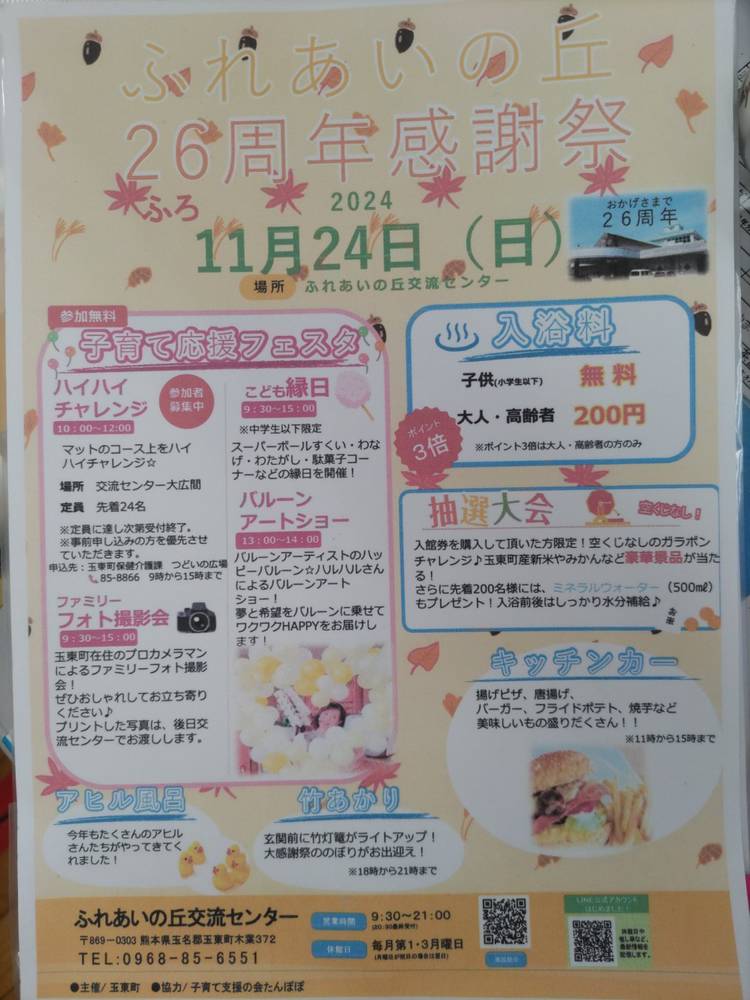 ふれあいの丘
26周年感謝祭
ふろ
2024
11月24日（日）
おかげさまで
26周年
場所 ふれあいの丘交流センター
参加無料
子育て応援フェスタ
ハイハイ
チャレンジ
参加者
募集中
10：00～12：00
マットのコース上をハイ
ハイチャレンジ☆
場所 交流センター大広間
定員 先着24名
※定員に達し次第受付終了。
※事前申し込みの方を優先させ
ていただきます。
申込先：玉東町保健介護課 つどいの広場
85-8866 9時から15時まで
ファミリー
フォト撮影会
9：30～15：00
玉東町在住のプロカメラマン
によるファミリーフォト撮影
会！
ぜひおしゃれしてお立ち寄り
ください♪
プリントした写真は、後日交
流センターでお渡しします。
こども縁日
9：30～15：00
※中学生以下限定
スーパーボールすくい・わな
げ・わたがし・駄菓子コー
ナーなどの縁日を開催！
バルーン
アートショー
13：00～14：00
バルーンアーティストのハッ
ピーバルーン☆ハルハルさん
によるバルーンアート
ショー！
夢と希望をバルーンに乗せて
ワクワクHAPPYをお届けし
ます！
入浴料
子供(小学生以下) 無料
大人・高齢者 200円
ポイント
3倍
※ポイント3倍は大人・高齢者の方のみ
抽選大会
空くじなし！
入館券を購入して頂いた方限定！空くじなしのガラポン
チャレンジ♪玉東町産新米やみかんなど豪華景品が当た
る！
さらに先着200名様には、ミネラルウォーター（500㎖）
もプレゼント！入浴前後はしっかり水分補給♪
お米
キッチンカー
揚げピザ、唐揚げ、
バーガー、フライドポテト、焼芋など
美味しいもの盛りだくさん！！
※11時から15時まで
アヒル風呂
今年もたくさんのアヒル
さんたちがやってきてく
れました！
竹あかり
玄関前に竹灯篭がライトアップ！
大感謝祭ののぼりがお出迎え！
※18時から21時まで
ふれあいの丘交流センター
〒869－0303 熊本県玉名郡玉東町木葉372
TEL:0968-85-6551
営業時間 9:30～21:00
(20:30最終受付)
休館日 毎月第1・3月曜日
(月曜日が祝日の場合は翌日)
LINE公式アカウント
はじめました！
休館日や
催し事など、
最新情報を
配信します。
●主催/ 玉東町 ●協力/ 子育て支援の会たんぽぽ